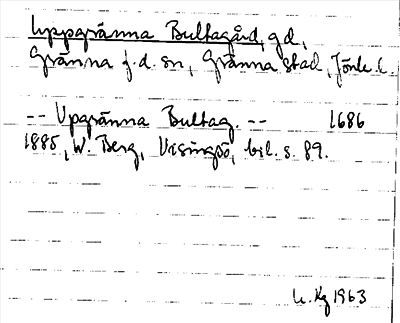 Uppgränna Bultagård, gd,
Gränna f.d. sn, Gränna stad, Jönk. l.
-- Upgränna Bultag. -- 1686
1885, W. Berg, Visingsö, bil. s. 89.
1963